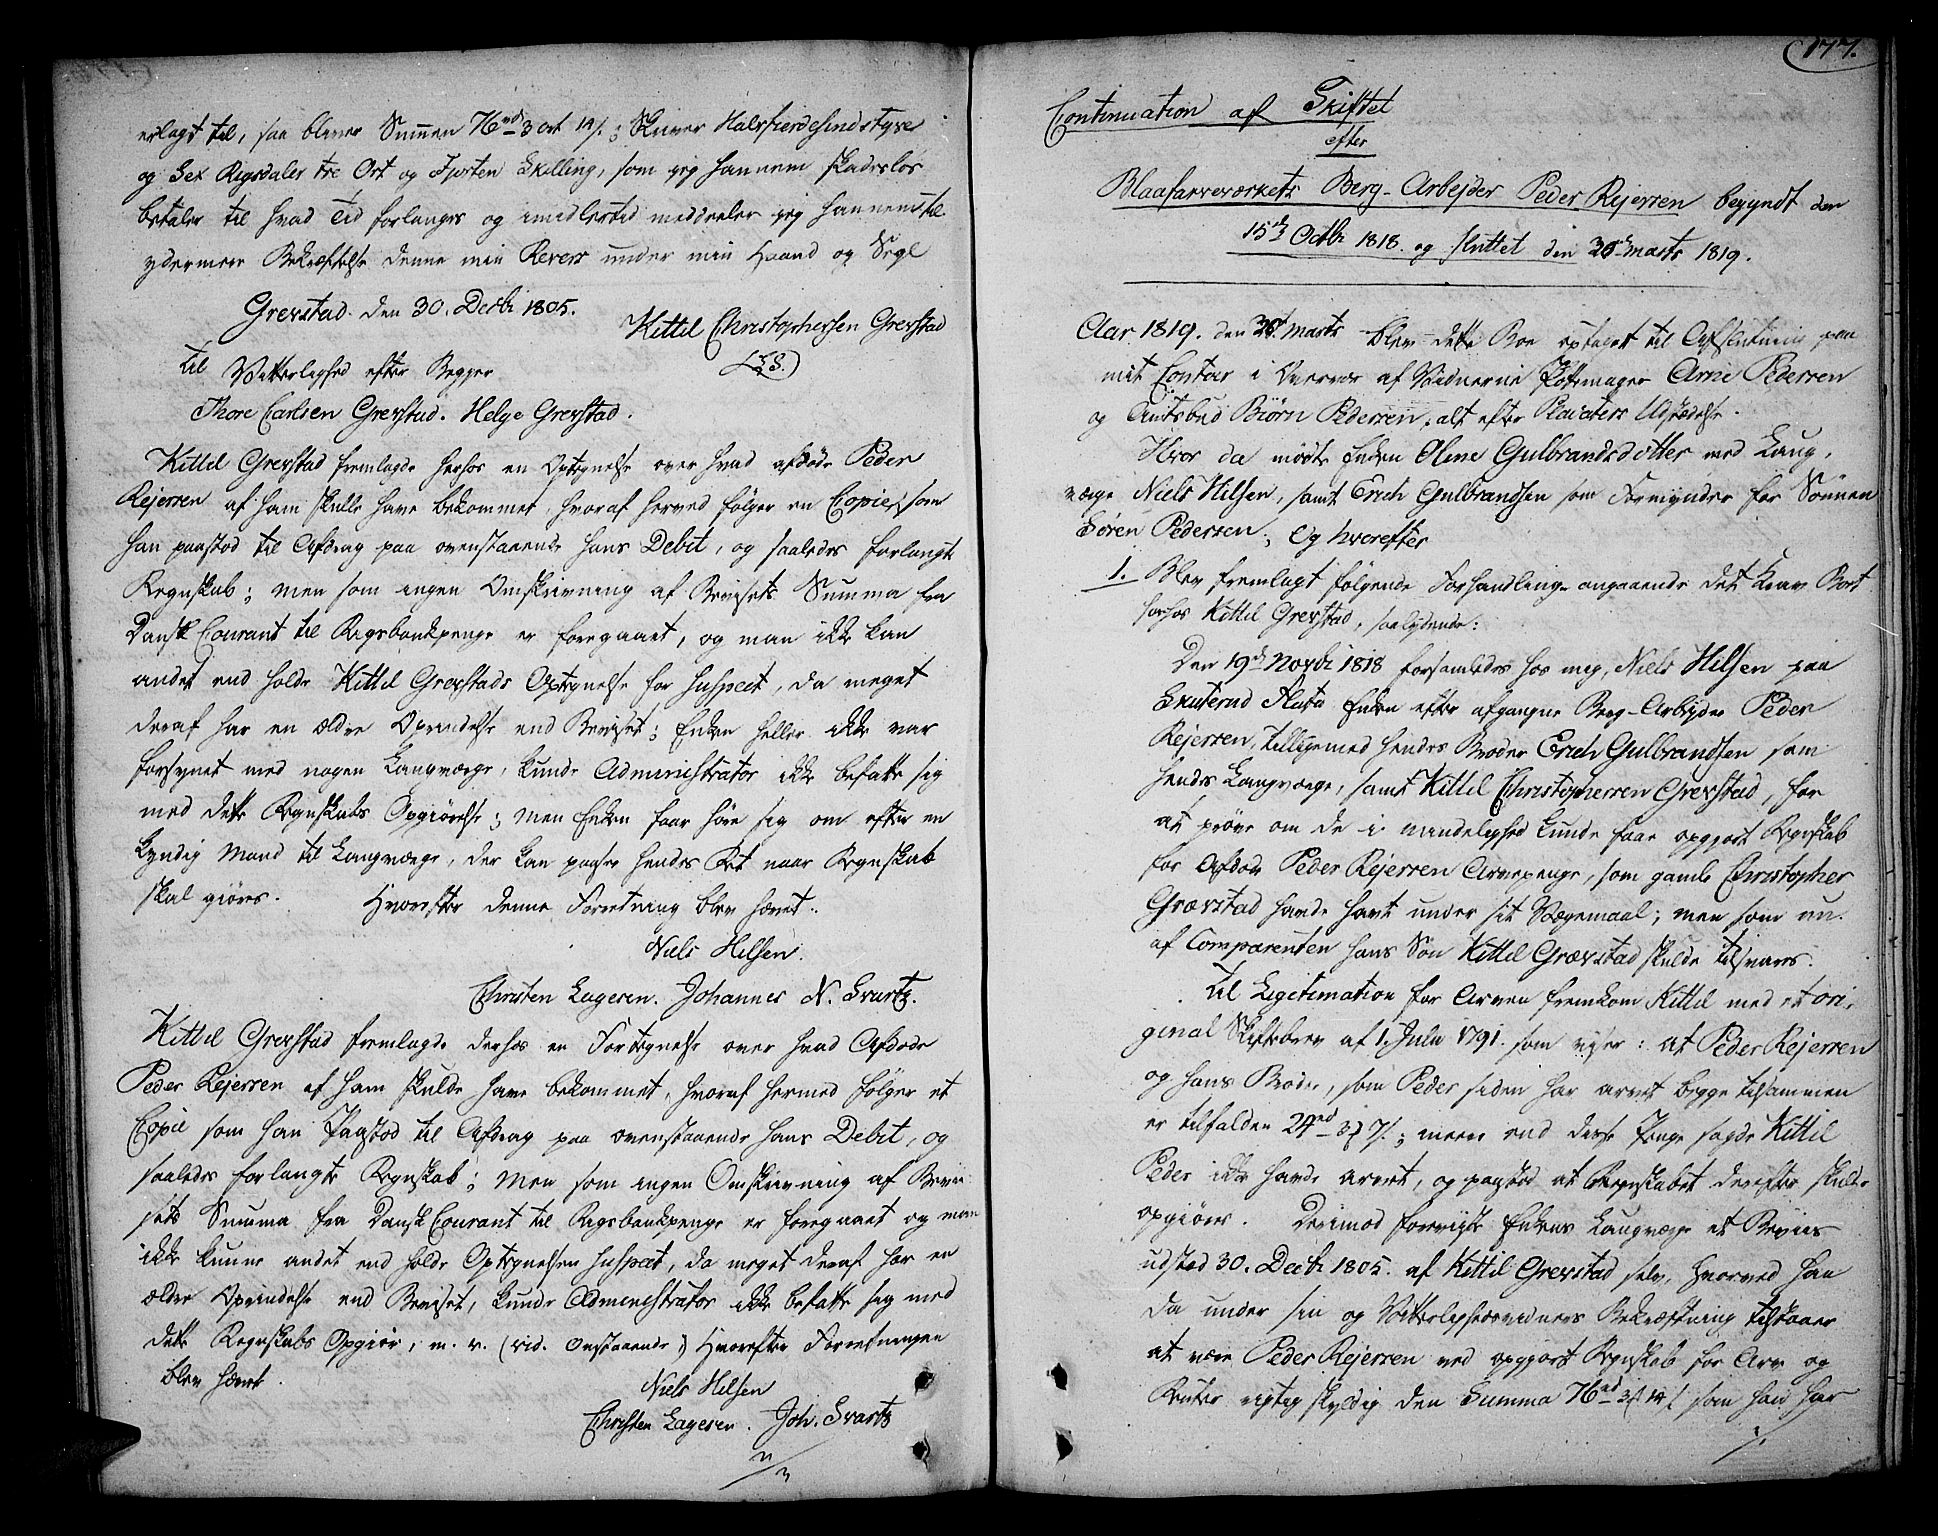 erlagt til, saa bliver Summen 76rd 3 Ort 14/.; skriver Halvfierdesindstyve
og Sex Rigsdaler tre Ort og Fjorten Skilling, som jeg hannem skadesløs
betaler til hvad Tid forlanges og imidlertid meddeeler jeg hannem til
ydermere Bekræftelse denne min Revers under min Haand og Segl
Grevstad den 30. Decbr 1805.
Kittil Christophersen Grevstad
(L.S.)
Til Vitterlighed efter Begger
Thore Carlsen Grevstad. Helge Grevstad.
Kittil Grevstad fremlagde herhos en Optegnelse over hvad afdøde Peder
Rejersen af ham skulle have bekommet, hvoraf herved følger en Copie, som
han paastod til Afdrag paa ovenstaaende hans Debit, og saaledes forlangte
Regnskab; men som ingen Omskrivning af Bevisets Summa fra
Dansk Courant til Rigsbankpenge er foregaaet, og man ikke kan
andet end holde Kittil Grevstads Optegnelse for suspect, da meget
deraf har en ældre Oprindelse end Beviset; Enken heller ikke var
forsynet med nogen Laugværge, kunde Administrator ikke befatte sig
med dette Regnskabs Opgiørelse; men Enken faar høre sig om efter en
kyndig Mand til Laugværge, der kan paasee hendes Ret naar Regnskab
skal giøres. Hvorefter denne Forretning blev hævet.
Niels Hilsen.
Christen Lagesen. Johannes N. Svartz.
Kittil Grevstad fremlagde derhos en Fortegnelse over hvad Afdøde
Peder Rejersen af ham skulde have bekommet, hvoraf hermed følger et
Copie som han Paastod til Afdrag paa ovenstaaende hans Debit, og
saaledes forlangte Regnskab; men som ingen Omskrivning af Bevi-
sets Summa fra Dansk Courant til Rigsbankpenge er foregaaet og man
ikke kunne andet end holde Optegnelsen suspect, da meget deraf har en
ældre Oprindelse end Beviset, kunde Administrator ikke befatte sig med
dette Regnskabs Opgiør, m. v. (vid. Ovstaaende) Hvorefter Forretningen
blev hævet.
Niels Hilsen
Christen Lagesen. Joh. Svartz
177.
Continuation af Skiftet
efter
Blaafarveværkets Berg-Arbejder Peder Rejersen begyndt den
15de Octbr 1818. og sluttet den 30te Marts 1819.
Aar 1819. den 30te Marts blev dette Boe optaget til Afslutning paa
mit Contor i Overvær af Vidnerne Pottemager Arne Pedersen
og Amtsbud Biørn Pedersen; alt efter Placaters Udstædelse.
Hvor da mødte Enken Oline Gulbrandsdotter med Laug-
værge Niels Hilsen, samt Erich Gulbrandsen som Formynder for Sønnen
Sören Pedersen; Og hvorefter
1. Blev fremlagt følgende Forhandling angaaende det Krav Boet
har hos Kittil Grevstad, saalydende:
Den 19de Novbr 1818 forsamledes hos meg, Niels Hilsen paa
Skuterud Fluta Enken efter afgangne Berg-Arbejder Peder
Rejersen, tilligemed hendes Broder Erich Gulbrandsen som
hendes Laugværge, samt Kittil Christophersen Grevstad, for
at prøve om de i mindelighed kunde faae opgjort Regnskab
for Afdøde Peder Rejersen Arvepenge, som gamle Christopher
Grævstad havde havt under sit Værgemaal; men som nu
af Comparenten hans Søn Kittil Grævstad skulde tilsvares.
Til Legitimation for Arven fremkom Kittil med et ori-
ginal Skiftebrev af 1. Julii 1791. som viser: at Peder Rejersen
og hans Broder, som Peder siden har arvet begge tilsammen
er tilfalden 24rd 3f 7/.; meere end disse Penge sagde Kittil
Peder ikke havde arvet, og paastod at Regnskabet derefter skulde
opgiøres. Derimod foreviste Enkens Laugværge et Beviis
udsted 30. Decbr 1805. af Kittil Grevstad selv, hvorved han
da under sin og Vitterlighedsvidners Bekræftning tilstaaer
at være Peder Rejersen ved opgjort Regnskab for Arv og
Renter rigtig skyldig den Summa 76rd 3f 14/ som han har